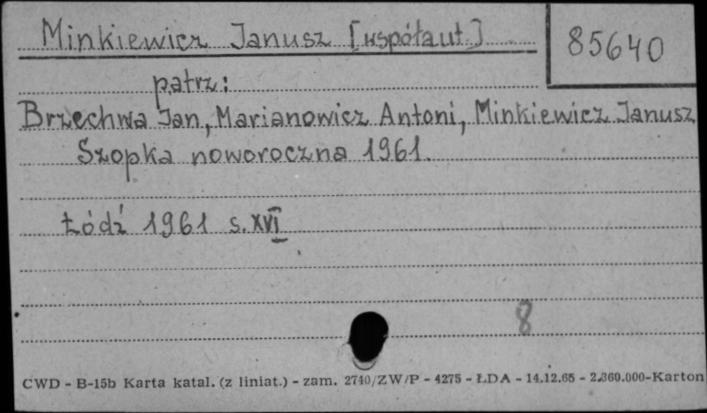 Minkiewicz Janusz [współaut.]
85640
patrz:
Brzechwa Jan, Marianowicz Antoni, Minkiewicz Janusz
Szopka noworoczna 1961.
Łódź 1961 s. XVI
8
CWD - B-15b Karta katal. (z liniat.) - zam. 2740/ZW/P - 4275 - ŁDA - 14.12.65 - 2.360.000-Karton